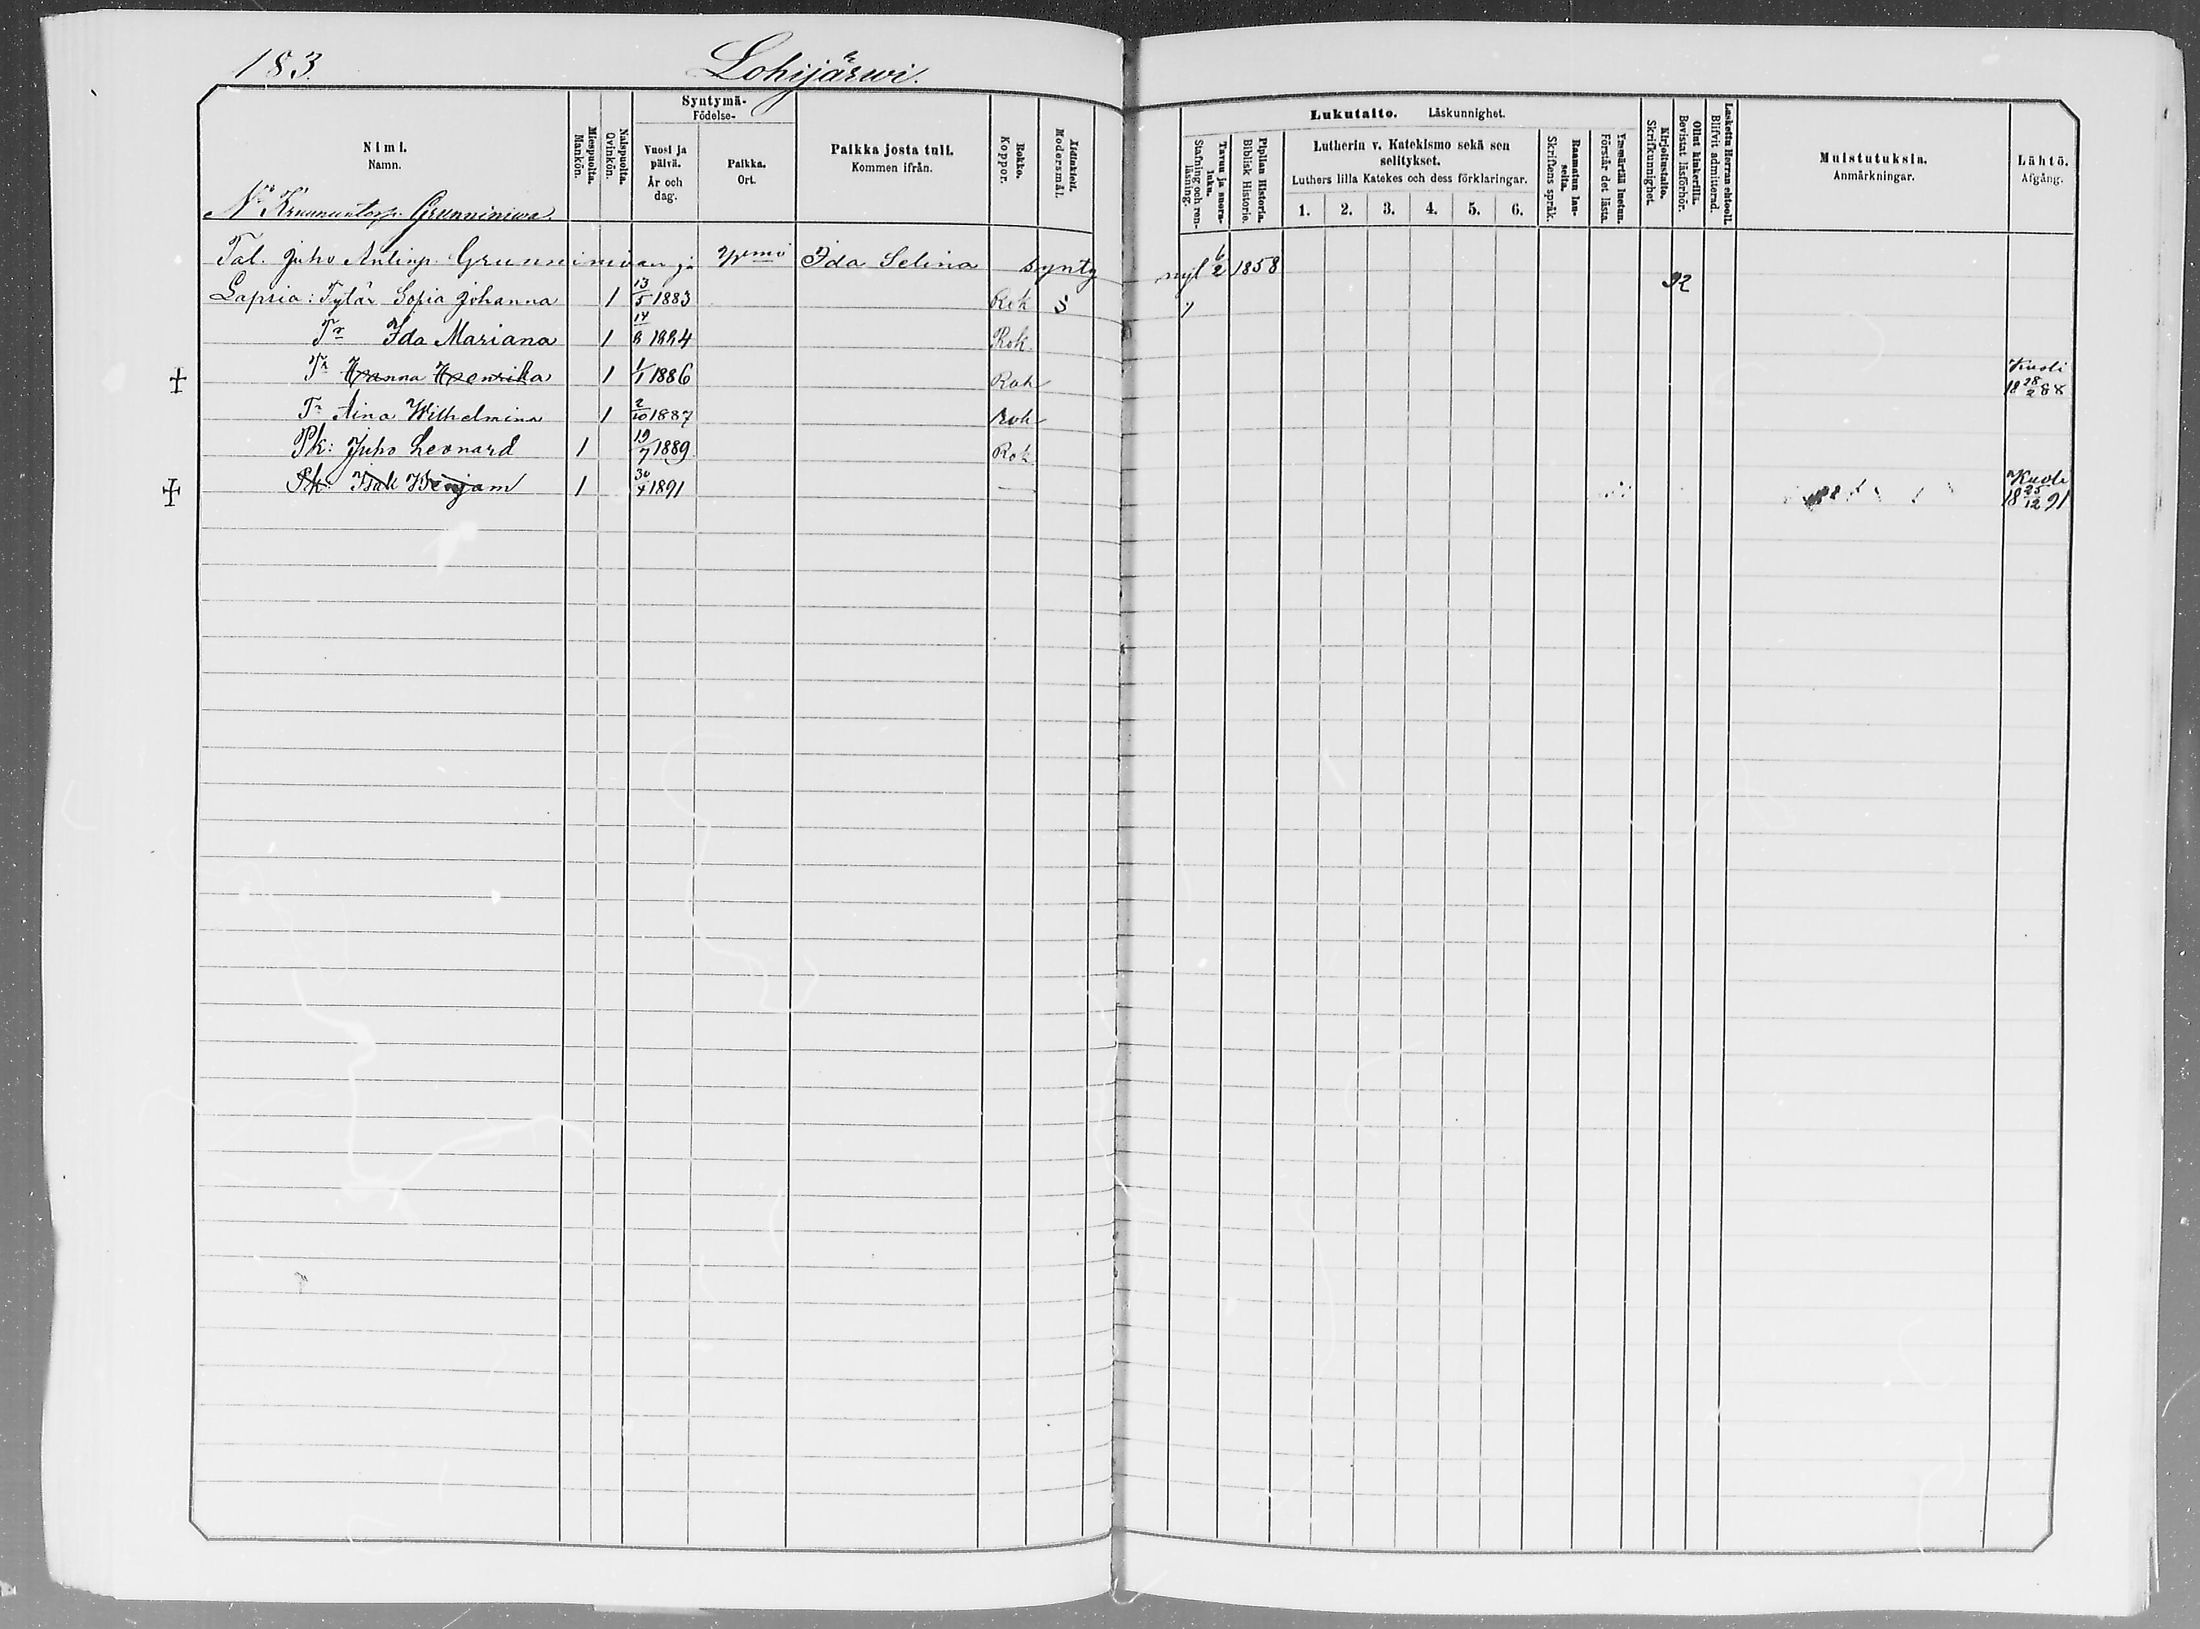 183.
Lohijärwi.
Nimi.
Namn.
Miespuolta.
Mankön.
Naispuolta.
Qvinkön.
Syntymä-
Födelse-
Vuosi ja päivä.
År och dag.
Paikka.
Ort.
Paikka josta tuli.
Kommen ifrån.
Rokko.
Koppor.
Äidinkieli.
Modersmål.
Lukutaito. Läskunnighet.
Tavuu ja suora-luku.
Stafning och ren-läsning.
Piplian Historia.
Biblisk Historie.
Lutherin v. Katekismo sekä sen
selitykset.
Luthers lilla Katekes och dess förklaringar.
1. 2. 3. 4. 5. 6.
Raamatun lau-seita.
Skriftens språk.
Ymmärtää luetun.
Förstår det lästa.
Kirjoitustaito.
Skriftkunnighet.
Ollut kinkerillä.
Bevistat läsförhör.
Laskettu Herran ehtool.
Blifvit admitterad.
Muistutuksia.
Anmärkningar.
Lähtö.
Afgång.
Grunniniwa
Tal. Juho Antinp. Grunninivan ja vaimo Ida Selina synty nyl 6/2 1858
Lapsia: Tytär Sofia Johanna 1 13/5 1883 Rok S 92
Tr Ida Mariana 1 14/8 1884 Rok
Tr Hanna Henrika 1 1/1 1886 Rok Kuoli 18 28/2 88
Tr Aina Wilhelmina 1 2/10 1887 Rok
Pk: Juho Leonard 1 19/7 1889 Rok
Pk: Isak Benjam 1 30/4 1891 — Kuoli 18 25/12 91